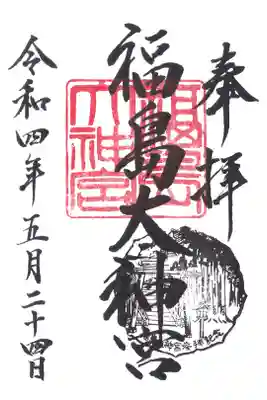 奉拝
福島大神宮
令和四年五月二十四日
福島大神宮